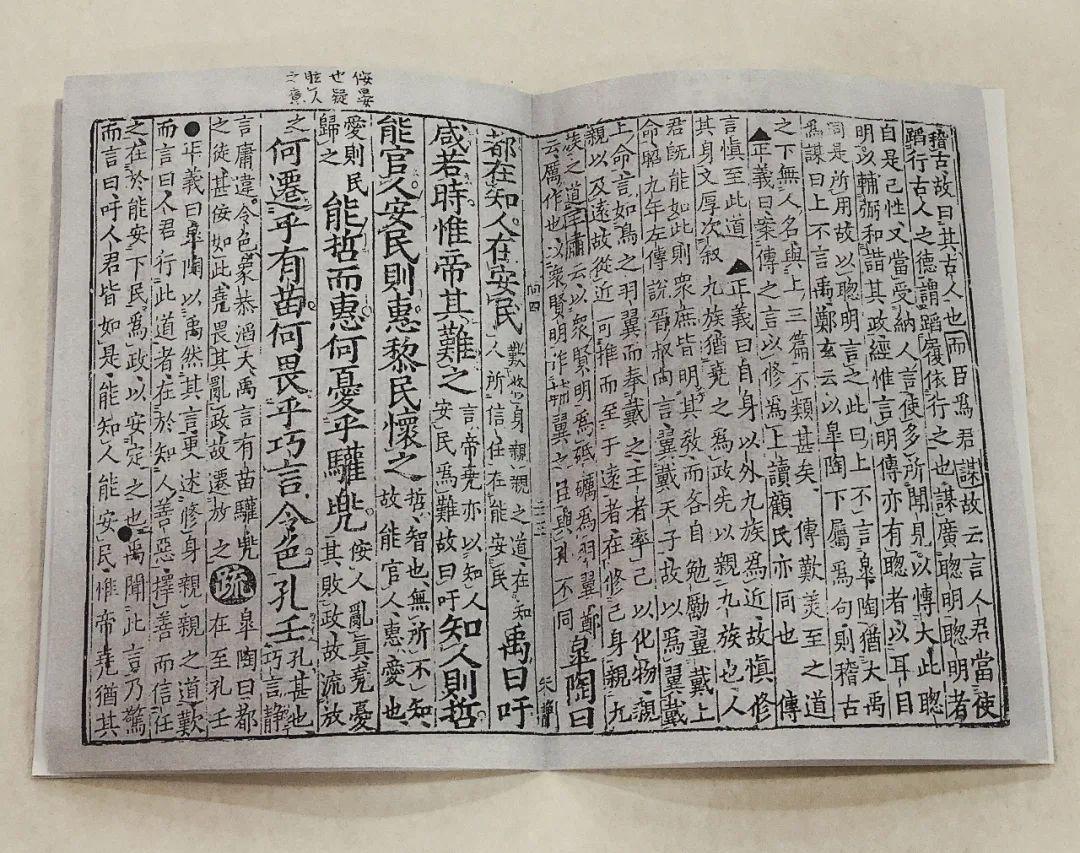 稽古故曰其古人也而臣爲君謀故云言人君當使
蹈行古人之德謂蹈履依行之也謀廣聰明聰明者
自是已性又當受納人言使多所聞見以博大此聰
明以輔弼和諧其政經惟言明傳亦有聰者以耳目
同是所用故以聰明言之此曰上不言皐陶猶大禹
爲謀曰上不言禹鄭玄云以皐陶下屬爲句則稽古
之下無人名與上三篇不類甚矣 傳歎美至之道
▲正義曰案傳之言以修爲上讀顧氏亦同也 傳
言慎至此道 ▲正義曰自身以外九族爲近故慎修
其身文厚次叙九族猶堯之爲政先以親九族也人
君既能如此則衆庶皆明其教而各自勉勵翼戴上
命昭九年左傳說晉叔向言翼戴天子故以爲翼戴
上命言如鳥之羽翼而奉戴之王者率己以化物親
親以及遠故從近可推而至于遠者在修己身親九
族之道王肅云以衆賢明爲砥礪爲羽翼鄭
云厲作也以衆賢明作輔翼之臣與孔不同
皐陶曰
都在知人在安民
歎修身親親之道在知
人所信任在能安民
禹曰吁
咸若時惟帝其難之
言帝堯亦以知人
安民爲難故曰吁
知人則哲
能官人安民則惠黎民懷之
哲智也無所不知
故能官人惠愛也
愛則民
歸之
能哲而惠何憂乎驩兜
佞人亂真堯憂
其敗政故流放
之
何遷乎有苗何畏乎巧言令色孔壬
孔甚也
巧言靜
言庸違令色象恭滔天禹言有苗驩兜
之徒甚佞如此堯畏其亂政故遷放之
疏
皐陶曰都
在至孔壬
●正義曰皐陶以禹然其言更述修身親親之道歎
而言曰人君行此道者在於知人善惡擇善而信任
之在於能安下民爲政以安定之也●禹聞此言乃驚
而言曰吁人君皆如是能知人能安民惟帝堯猶其